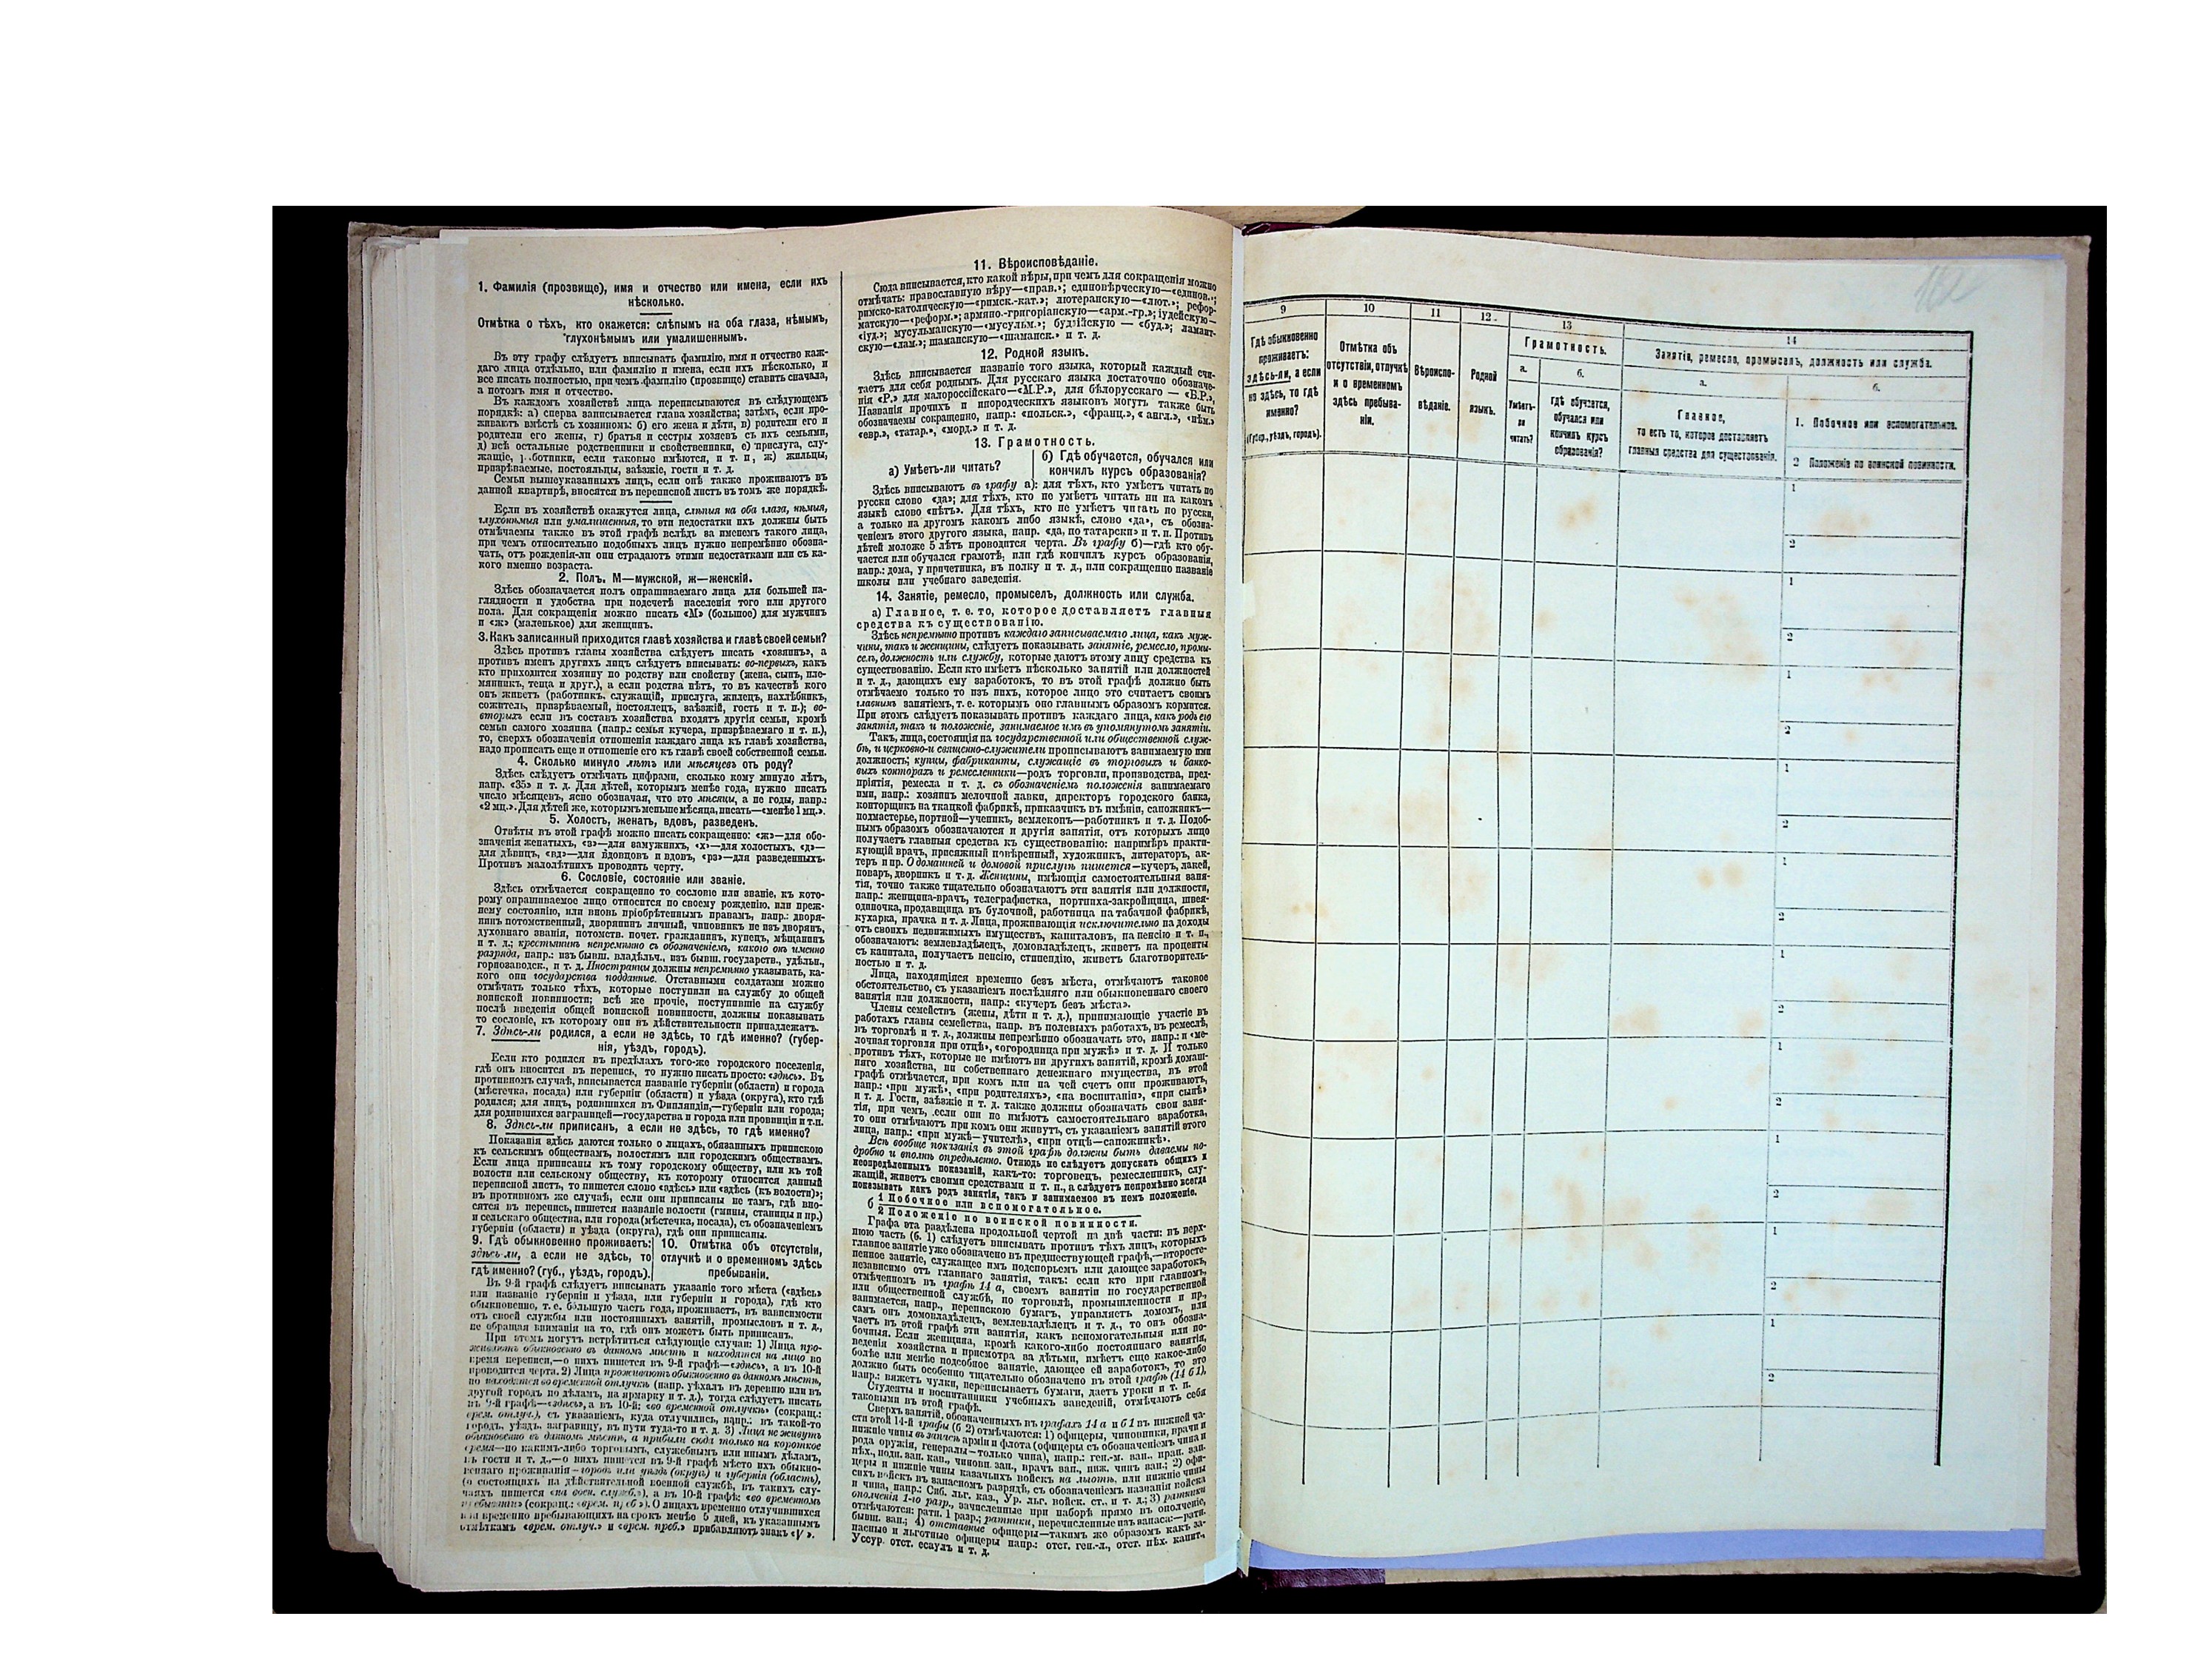 1. Фамилія (прозвище), имя и отчество или имена, если ихъ
нѣсколько.
Отмѣтка о тѣхъ, кто окажется: слѣпымъ на оба глаза, нѣмымъ,
глухонѣмымъ или умалишеннымъ.
Въ эту графу слѣдуетъ вписывать фамилію, имя и отчество каж-
даго лица отдѣльно, или фамилію и имена, если ихъ нѣсколько, и
все писать полностью, при чемъ фамилію (прозвище) ставить сначала,
а потомъ имя и отчество.
Въ каждомъ хозяйствѣ лица переписываются въ слѣдующемъ
порядкѣ: а) сперва записывается глава хозяйства; затѣмъ, если про-
живаютъ вмѣстѣ съ хозяиномъ: б) его жена и дѣти, в) родители его и
родители его жены, г) братья и сестры хозяевъ съ ихъ семьями,
д) всѣ остальные родственники и свойственники, е) прислуга, слу-
жащіе, работники, если таковые имѣются, и т. п., ж) жильцы,
призрѣваемые, постояльцы, заѣзжіе, гости и т. д.
Семьи вышеуказанныхъ лицъ, если онѣ также проживаютъ въ
данной квартирѣ, вносятся въ переписной листъ въ томъ же порядкѣ.
Если въ хозяйствѣ окажутся лица, слѣпыя на оба глаза, нѣмыя,
глухонѣмыя или умалишенныя, то эти недостатки ихъ должны быть
отмѣчаемы также въ этой графѣ вслѣдъ за именемъ такого лица,
при чемъ относительно подобныхъ лицъ нужно непремѣнно обозна-
чать, отъ рожденія-ли они страдаютъ этими недостатками или съ ка-
кого именно возраста.
2. Полъ. М—мужской, ж—женскій.
Здѣсь обозначается полъ опрашиваемаго лица для большей на-
глядности и удобства при подсчетѣ населенія того или другого
пола. Для сокращенія можно писать «М» (большое) для мужчинъ
и «ж» (маленькое) для женщинъ.
3. Какъ записанный приходится главѣ хозяйства и главѣ своей семьи?
Здѣсь противъ главы хозяйства слѣдуетъ писать «хозяинъ», а
противъ именъ другихъ лицъ слѣдуетъ вписывать: во-первыхъ, какъ
кто приходится хозяину по родству или свойству (жена, сынъ, пле-
мянникъ, теща и друг.), а если родства нѣтъ, то въ качествѣ кого
онъ живетъ (работникъ, служащій, прислуга, жилецъ, нахлѣбникъ,
сожитель, призрѣваемый, постоялецъ, заѣзжій, гость и т. п.); во-
вторыхъ если въ составъ хозяйства входятъ другія семьи, кромѣ
семьи самого хозяина (напр.: семья кучера, призрѣваемаго и т. п.),
то, сверхъ обозначенія отношенія каждаго лица къ главѣ хозяйства,
надо прописать еще и отношеніе его къ главѣ своей собственной семьи.
4. Сколько минуло лѣтъ или мѣсяцевъ отъ роду?
Здѣсь слѣдуетъ отмѣчать цифрами, сколько кому минуло лѣтъ,
напр. «35» и т. д. Для дѣтей, которымъ менѣе года, нужно писать
число мѣсяцевъ, ясно обозначая, что это мѣсяцы, а не годы, напр.:
«2 мц.». Для дѣтей же, которымъ меньше мѣсяца, писать—«менѣе 1 мц.».
5. Холостъ, женатъ, вдовъ, разведенъ.
Отвѣты въ этой графѣ можно писать сокращенно: «ж»—для обо-
значенія женатыхъ, «з»—для замужнихъ, «х»—для холостыхъ, «д»—
для дѣвицъ, «вд»—для вдовцовъ и вдовъ, «рз»—для разведенныхъ.
Противъ малолѣтнихъ проводить черту.
6. Сословіе, состояніе или званіе.
Здѣсь отмѣчается сокращенно то сословіе или званіе, къ кото-
рому опрашиваемое лицо относится по своему рожденію, или преж-
нему состоянію, или вновь пріобрѣтеннымъ правамъ, напр.: дворя-
нинъ потомственный, дворянинъ личный, чиновникъ не изъ дворянъ,
духовнаго званія, потомств. почет. гражданинъ, купецъ, мѣщанинъ
и т. д.; крестьянинъ непремѣнно съ обозначеніемъ, какого онъ именно
разряда, напр.: изъ бывш. владѣльч., изъ бывш. государств., удѣльн.,
горнозаводск., и т. д. Иностранцы должны непремѣнно указывать, ка-
кого они государства подданные. Отставными солдатами можно
отмѣчать только тѣхъ, которые поступили на службу до общей
воинской повинности; всѣ же прочіе, поступившіе на службу
послѣ введенія общей воинской повинности, должны показывать
то сословіе, къ которому они въ дѣйствительности принадлежатъ.
7. Здѣсь-ли родился, а если не здѣсь, то гдѣ именно? (губер-
нія, уѣздъ, городъ).
Если кто родился въ предѣлахъ того-же городского поселенія,
гдѣ онъ вносится въ перепись, то нужно писать просто: «здѣсь». Въ
противномъ случаѣ, вписывается названіе губерніи (области) и города
(мѣстечка, посада) или губерніи (области) и уѣзда (округа), кто гдѣ
родился; для лицъ, родившихся въ Финляндіи,—губерніи или города;
для родившихся заграницей—государства и города или провинціи и т.п.
8. Здѣсь-ли приписанъ, а если не здѣсь, то гдѣ именно?
Показанія здѣсь даются только о лицахъ, обязанныхъ припискою
къ сельскимъ обществамъ, волостямъ или городскимъ обществамъ.
Если лица приписаны къ тому городскому обществу, или къ той
волости или сельскому обществу, къ которому относится данный
переписной листъ, то пишется слово «здѣсь» или «здѣсь (къ волости)»;
въ противномъ же случаѣ, если они приписаны не тамъ, гдѣ вно-
сятся въ перепись, пишется названіе волости (гмины, станицы и пр.)
и сельскаго общества, или города (мѣстечка, посада), съ обозначеніемъ
губерніи (области) и уѣзда (округа), гдѣ они приписаны.
9. Гдѣ обыкновенно проживаетъ:
здѣсь-ли, а если не здѣсь, то
гдѣ именно? (губ., уѣздъ, городъ).
10. Отмѣтка объ отсутствіи,
отлучкѣ и о временномъ здѣсь
пребываніи.
Въ 9-й графѣ слѣдуетъ вписывать указаніе того мѣста («здѣсь»
или названіе губерніи и уѣзда, или губерніи и города), гдѣ кто
обыкновенно, т. е. бо́льшую часть года, проживаетъ, въ зависимости
отъ своей службы или постоянныхъ занятій, промысловъ и т. д.,
не обращая вниманія на то, гдѣ онъ можетъ быть приписанъ.
При этомъ могутъ встрѣтиться слѣдующіе случаи: 1) Лица про-
живаютъ обыкновенно въ данномъ мѣстѣ и находятся на лицо во
время переписи,—о нихъ пишется въ 9-й графѣ—«здѣсь», а въ 10-й
проводится черта. 2) Лица проживаютъ обыкновенно въ данномъ мѣстѣ,
но находятся во временной отлучкѣ (напр. уѣхалъ въ деревню или въ
другой городъ по дѣламъ, на ярмарку и т. д.), тогда слѣдуетъ писать
въ 9-й графѣ—«здѣсь», а въ 10-й: «во временной отлучкѣ» (сокращ.:
врем. отлуч.), съ указаніемъ, куда отлучились, напр.: въ такой-то
городъ, уѣздъ, заграницу, въ пути туда-то и т. д. 3) Лица не живутъ
обыкновенно въ данномъ мѣстѣ, а прибыли сюда только на короткое
время—по какимъ-либо торговымъ, служебнымъ или инымъ дѣламъ,
въ гости и т. д.,—о нихъ пишется въ 9-й графѣ мѣсто ихъ обыкно-
веннаго проживанія—городъ или уѣздъ (округъ) и губернія (область),
(о состоящихъ на дѣйствительной военной службѣ, въ такихъ слу-
чаяхъ пишется «на воен. служб.»), а въ 10-й графѣ: «во временномъ
пребываніи» (сокращ.: «врем. преб.»). О лицахъ временно отлучившихся
или временно пребывающихъ на срокъ менѣе 5 дней, къ указаннымъ
отмѣткамъ «врем. отлуч.» и «врем. преб.» прибавляютъ знакъ «V».
11. Вѣроисповѣданіе.
Сюда вписывается, кто какой вѣры, при чемъ для сокращенія можно
отмѣчать: православную вѣру—«прав.»; единовѣрческую—«единов.»;
римско-католическую—«римск.-кат.»; лютеранскую—«лют.»; рефор-
матскую—«реформ.»; армяно-григоріанскую—«арм.-гр.»; іудейскую—
«іуд.»; мусульманскую—«мусульм.»; буддійскую — «буд.»; ламаит-
скую—«лам.»; шаманскую—«шаманск.» и т. д.
12. Родной языкъ.
Здѣсь вписывается названіе того языка, который каждый счи-
таетъ для себя роднымъ. Для русскаго языка достаточно обозначе-
нія «Р.» для малороссійскаго—«М.Р.», для бѣлорусскаго — «Б.Р.»,
Названія прочихъ и инородческихъ языковъ могутъ также быть
обозначаемы сокращенно, напр.: «польск.», «франц.», «англ.», «нѣм.»
«евр.», «татар.», «морд.» и т. д.
13. Грамотность.
а) Умѣетъ-ли читать?
б) Гдѣ обучается, обучался или
кончилъ курсъ образованія?
Здѣсь вписываютъ въ графу а): для тѣхъ, кто умѣетъ читать по
русски слово «да»; для тѣхъ, кто не умѣетъ читать ни на какомъ
языкѣ слово «нѣтъ». Для тѣхъ, кто не умѣетъ читать по русски,
а только на другомъ какомъ либо языкѣ, слово «да», съ обозна-
ченіемъ этого другого языка, напр. «да, по татарски» и т. п. Противъ
дѣтей моложе 5 лѣтъ проводится черта. Въ графу б)—гдѣ кто обу-
чается или обучался грамотѣ, или гдѣ кончилъ курсъ образованія,
напр.: дома, у причетника, въ полку и т. д., или сокращенно названіе
школы или учебнаго заведенія.
14. Занятіе, ремесло, промыселъ, должность или служба.
а) Главное, т. е. то, которое доставляетъ главныя
средства къ существованію.
Здѣсь непремѣнно противъ каждаго записываемаго лица, какъ муж-
чины, такъ и женщины, слѣдуетъ показывать занятіе, ремесло, промы-
селъ, должность или службу, которые даютъ этому лицу средства къ
существованію. Если кто имѣетъ нѣсколько занятій или должностей
и т. д., дающихъ ему заработокъ, то въ этой графѣ должно быть
отмѣчаемо только то изъ нихъ, которое лицо это считаетъ своимъ
главнымъ занятіемъ, т. е. которымъ онъ главнымъ образомъ кормится.
При этомъ слѣдуетъ показывать противъ каждаго лица, какъ родъ его
занятія, такъ и положеніе, занимаемое имъ въ упомянутомъ занятіи.
Такъ, лица, состоящія на государственной или общественной служ-
бѣ, и церковно-и священно-служители прописываютъ занимаемую ими
должность; купцы, фабриканты, служащіе въ торговыхъ и банко-
выхъ конторахъ и ремесленники—родъ торговли, производства, пред-
пріятія, ремесла и т. д. съ обозначеніемъ положенія занимаемаго
ими, напр.: хозяинъ мелочной лавки, директоръ городского банка,
конторщикъ на ткацкой фабрикѣ, приказчикъ въ имѣніи, сапожникъ—
подмастерье, портной—ученикъ, землекопъ—работникъ и т. д. Подоб-
нымъ образомъ обозначаются и другія занятія, отъ которыхъ лицо
получаетъ главныя средства къ существованію: напримѣръ практи-
кующій врачъ, присяжный повѣренный, художникъ, литераторъ, ак-
теръ и пр. О домашней и домовой прислугѣ пишется—кучеръ, лакей,
поваръ, дворникъ и т. д. Женщины, имѣющія самостоятельныя заня-
тія, точно также тщательно обозначаютъ эти занятія или должности,
напр.: женщина-врачъ, телеграфистка, портниха-закройщица, швея-
одиночка, продавщица въ булочной, работница на табачной фабрикѣ,
кухарка, прачка и т. д. Лица, проживающія исключительно на доходы
отъ своихъ недвижимыхъ имуществъ, капиталовъ, на пенсію и т. п.,
обозначаютъ: землевладѣлецъ, домовладѣлецъ, живетъ на проценты
съ капитала, получаетъ пенсію, стипендію, живетъ благотворитель-
ностью и т. д.
Лица, находящіяся временно безъ мѣста, отмѣчаютъ таковое
обстоятельство, съ указаніемъ послѣдняго или обыкновеннаго своего
занятія или должности, напр.: «кучеръ безъ мѣста».
Члены семействъ (жены, дѣти и т. д.), принимающіе участіе въ
работахъ главы семейства, напр. въ полевыхъ работахъ, въ ремеслѣ,
въ торговлѣ и т. д., должны непремѣнно обозначать это, напр.: и «ме-
лочная торговля при отцѣ», «огородница при мужѣ» и т. д. И только
противъ тѣхъ, которые не имѣютъ ни другихъ занятій, кромѣ домаш-
няго хозяйства, ни собственнаго денежнаго имущества, въ этой
графѣ отмѣчается, при комъ или на чей счетъ они проживаютъ,
напр.: «при мужѣ», «при родителяхъ», «на воспитаніи», «при сынѣ»
и т. д. Гости, заѣзжіе и т. д. также должны обозначать свои заня-
тія, при чемъ, если они не имѣютъ самостоятельнаго заработка,
то они отмѣчаютъ при комъ они живутъ, съ указаніемъ занятій этого
лица, напр.: «при мужѣ—учителѣ», «при отцѣ—сапожникѣ».
Всѣ вообще показанія въ этой графѣ должны быть даваемы по-
дробно и вполнѣ опредѣленно. Отнюдь не слѣдуетъ допускать общихъ и
неопредѣленныхъ показаній, какъ-то: торговецъ, ремесленникъ, слу-
жащій, живетъ своими средствами и т. п., а слѣдуетъ непремѣнно всегда
показывать какъ родъ занятія, такъ и занимаемое въ немъ положеніе.
б 1 Побочное или вспомогательное.
2 Положеніе по воинской повинности.
Графа эта раздѣлена продольной чертой на двѣ части: въ верх-
нюю часть (б. 1) слѣдуетъ вписывать противъ тѣхъ лицъ, которыхъ
главное занятіе уже обозначено въ предшествующей графѣ,—второсте-
пенное занятіе, служащее имъ подспорьемъ или дающее заработокъ,
независимо отъ главнаго занятія, такъ: если кто при главномъ,
отмѣченномъ въ графѣ 14 а, своемъ занятіи по государственной
или общественной службѣ, по торговлѣ, промышленности и пр.,
занимается, напр., перепискою бумагъ, управляетъ домомъ, или
самъ онъ домовладѣлецъ, землевладѣлецъ и т. д., то онъ обозна-
чаетъ въ этой графѣ эти занятія, какъ вспомогательныя или по-
бочныя. Если женщина, кромѣ какого-либо постояннаго занятія,
веденія хозяйства и присмотра за дѣтьми, имѣетъ еще какое-либо
болѣе или менѣе подсобное занятіе, дающее ей заработокъ, то это
должно быть особенно тщательно обозначено въ этой графѣ (14 б 1),
напр.: вяжетъ чулки, переписываетъ бумаги, даетъ уроки и т. п.
Студенты и воспитанники учебныхъ заведеній, отмѣчаютъ себя
таковыми въ этой графѣ.
Сверхъ занятій, обозначенныхъ въ графахъ 14 а и б 1 въ нижней ча-
сти этой 14-й графы (б 2) отмѣчаются: 1) офицеры, чиновники, врачи и
нижніе чины въ запасѣ арміи и флота (офицеры съ обозначеніемъ чина и
рода оружія, генералы—только чина), напр.: ген.-м. зап., прап. зап.
пѣх., подп. зап. кав., чиновн. зап., врачъ зап., ниж. чинъ зап.; 2) офи-
церы и нижніе чины казачьихъ войскъ на льготѣ, или нижніе чины
сихъ войскъ въ запасномъ разрядѣ, съ обозначеніемъ названія войска
и чина, напр.: Сиб. льг. каз., Ур. льг. войск. ст., и т. д.; 3) ратники
ополченія 1-го разр., зачисленные при наборѣ прямо въ ополченіе,
отмѣчаются: ратн. 1 разр.; ратники, перечисленные изъ запаса:—ратн.
бывш. зап.; 4) отставные офицеры—такимъ же образомъ какъ за-
пасные и льготные офицеры напр.: отст. ген.-л., отст. пѣх. капит.,
Уссур. отст. есаулъ и т. д.
162
9
10
11
12
13
14
Гдѣ обыкновенно
проживаетъ:
здѣсь-ли, а если
не здѣсь, то гдѣ
именно?
(Губер., уѣздъ, городъ).
Отмѣтка объ
отсутствіи, отлучкѣ
и о временномъ
здѣсь пребыва-
ніи.
Вѣроиспо-
вѣданіе.
Родной
языкъ.
Грамотность.
а.
Умѣетъ-
ли
читать?
б.
Гдѣ обучается,
обучался или
кончилъ курсъ
образованія?
Занятія, ремесло, промыселъ, должность или служба.
а.
Главное,
то есть то, которое доставляетъ
главныя средства для существованія.
б.
1. Побочное или вспомогательное.
2 Положеніе по воинской повинности.
1
2
1
2
1
2
1
2
1
2
1
2
1
2
1
2
1
2
1
2